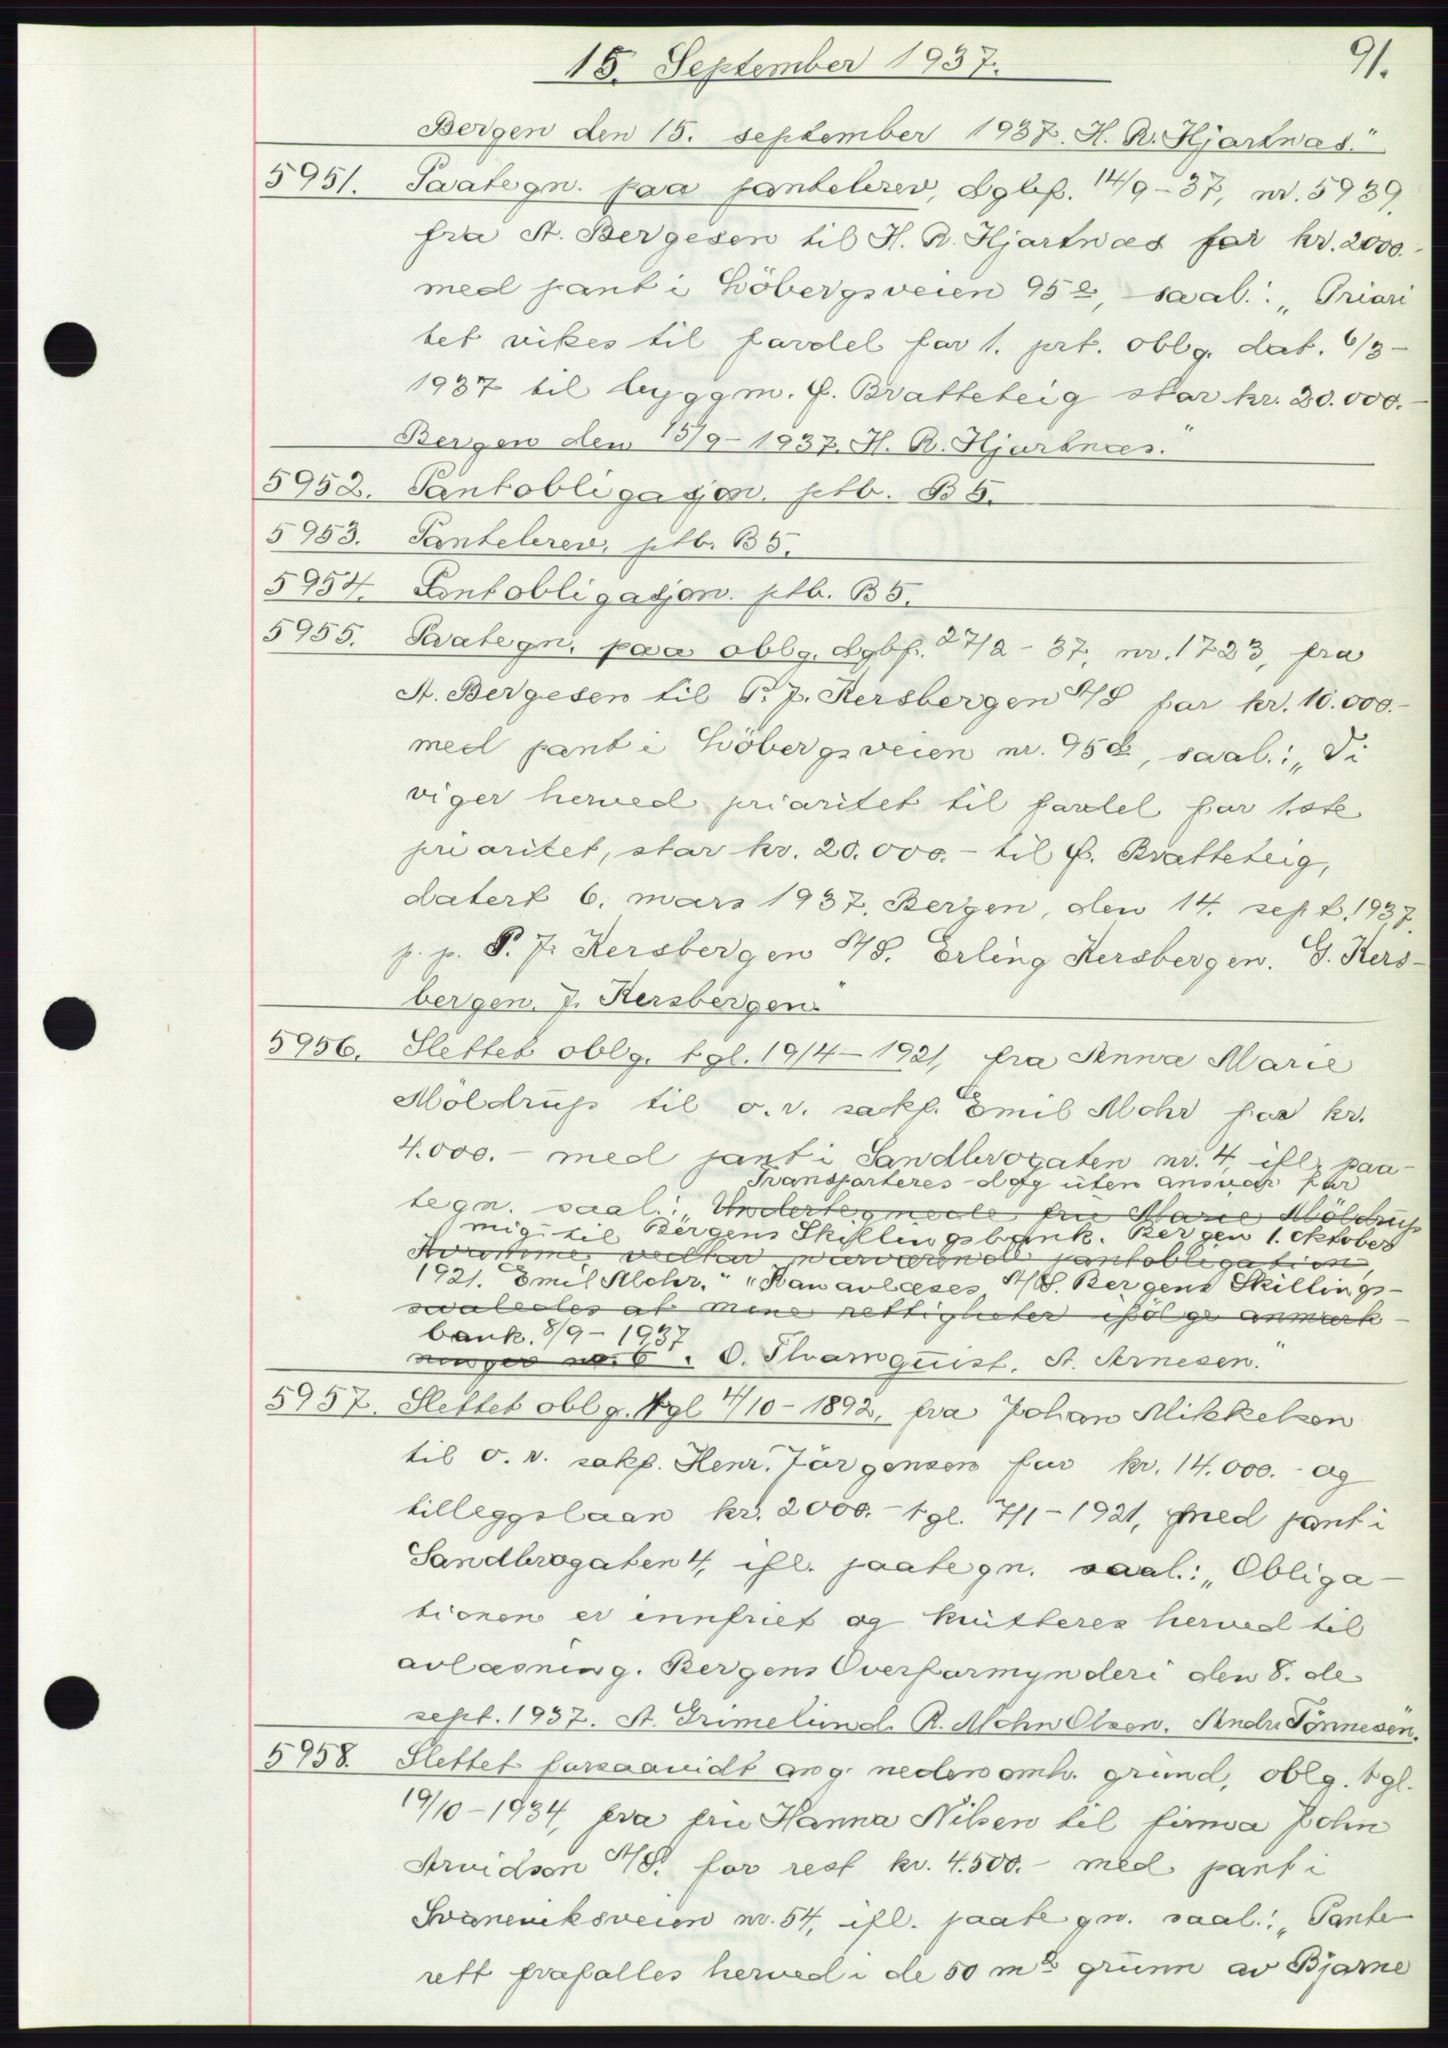 15. September 1937.
91.
Bergen den 15. september 1937. H. R. Hjartnæs."
5951. Paategn. paa pantebrev, dgbf. 14/9-37, nr. 5939,
fra A. Bergesen til H. R. Hjartnæs for kr. 2000.-
med pant i Löbergsveien 95 saal.: "Priori
tet vikes til fordel for 1. prt. oblg. dat. 6/3-
1937 til byggm. Bratteteig stor kr. 20.000.-
Bergen den 15/9-1937. H. R. Hjartnæs."
5952. Pantobligasjon. ptb. B 5.
5953. Pantebrev, ptb. B 5.
5954. Pantobligasjon. ptb. B 5.
5955. Paategn. paa oblg. dgbf. 27/2-37, nr. 1723, fra
A. Bergesen til P. J. Kersbergen A/S for kr. 10.000.-
med pant i Löbergsveien nr. 95 saal.: "Vi
viger herved prioritet til fordel for 1ste
prioritet, stor kr. 20.000.- til Bratteteig,
datert 6. mars 1937. Bergen, den 14. sept. 1937.
p. p. P. J. Kersbergen A/S. Erling Kersbergen. G. Kers-
bergen. J. Kersbergen."
5956. Slettet oblg. tgl. 19/4-1921, fra Anna Marie
Möldrup til o. r. sakf. Emil Mohr for kr.
4.000.- med pant i Sandbrogaten nr. 4, ifl. paa-
Transporteres dog uten ansvar for
tegn. saal.: "Undertegnede fru Marie Möldrup
mig til Bergens Skillingsbank. Bergen 1. oktober
vedtar nærværende pantobligation,
1921. Emil Mohr." "Kan avlæses A/S. Bergens Skillings-
saaledes at mine rettigheter ifölge anmerk-
bank. 8/9-1937
ninger no. 6. O. Thamquist. A. Arnesen."
5957. Slettet oblg. tgl 4/10-1892, fra Johan Mikkelsen
til o. r. sakf. Henr. Jörgensen for kr. 14.000.- og
tilleggslaan kr. 2000.- tgl. 7/1-1921, med pant i
Sandbrogaten 4, ifl. paategn. saal.: "Obliga-
tionen er innfriet og kvitteres herved til
avlæsning. Bergens Overformynderi den 8. de
sept. 1937. A. Grimelund. R. Mohn Olsen. Andr. Tönnesen."
5958. Slettet forsaavidt ang. nedenomh. grund, oblg. tgl.
19/10-1934, fra fru Hanna Nilsen til firma John
Arvidson A/S. for rest kr. 4.500.- med pant i
Svaneviksveien nr. 54, ifl. paategn. saal.: "Pante
rett frafalles herved i de 50 m2 grunn av Bjarne